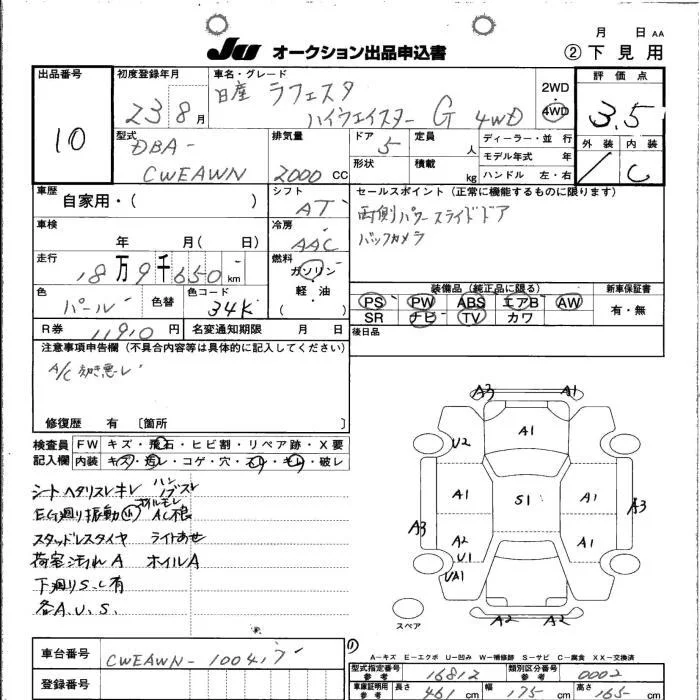 月 日 AA
JU オークション出品申込書
② 下見用
出品番号 10
初度登録年月 23 8月
車名・グレード 日産 ラフェスタ
ハイウェイスター G 4WD
2WD
4WD
評価点 3.5
外装 / 内装 C
型式 DBA-
CWEAWN
排気量 2000 CC
ドア 5
形状
定員 人
積載 kg
ディーラー・並行
モデル年式 年
ハンドル 左・右
車歴 自家用・( )
シフト AT
セールスポイント (正常に機能するものに限ります)
両側パワースライドドア
バックカメラ
車検 年 月( 日)
冷房 AAC
走行 18万9千650km
燃料 ガソリン
軽・油
( )
色 パール
色替
色コード 34K
装備品 (純正品に限る)
PS PW ABS エアB AW
SR ナビ TV カワ
新車保証書
有・無
R券 11910円
名変通知期限 月 日
後日品
注意事項申告欄 (不具合内容等は具体的に記入してください)
A/C 効き悪い
修復歴 有 〔箇所 〕
検査員記入欄
FW キズ・飛石・ヒビ割・リペア跡・X要
内装 キズ・汚レ・コゲ・穴・スレ・キレ・破レ
シートヘタリスレキレ ハンドルスレ
EG廻り振動 オイルモレ AC不良
スタッドレスタイヤ ライトあせ
荷室汚れA ホイルA
下廻りS.C有
各A.U.S.
A3 A1
U2 A1
A1 S1 A1
A3 A3
A2 A1
U1
UA1
A2 A2
スペア
A-キズ E-エクボ U-凹み W-補修跡 S-サビ C-腐食 XX-交換済
車台番号 CWEAWN-100417
登録番号
型式指定番号 参考 16812
類別区分番号 参考 0002
車庫証明用 参考 長さ 461cm 幅 175cm 高さ 165cm